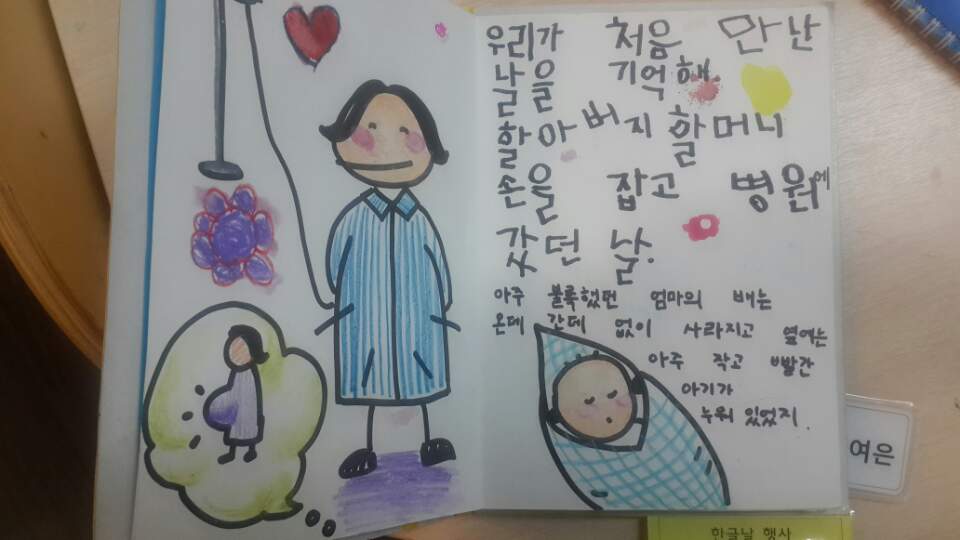 우리가 처음 만난
날을 기억해.
할아버지 할머니
손을 잡고 병원에
갔던 날.
아주 볼록했던 엄마의 배는
온데 간데 없이 사라지고 옆에는
아주 작고 빨간
아기가
누워 있었지.
여은
한글날 행사